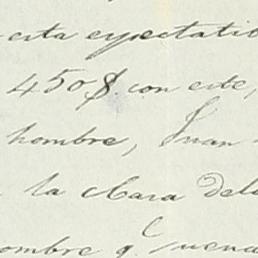 esta espectati
450$. con este,
hombre, Juan
la clara del
ombre q. suena